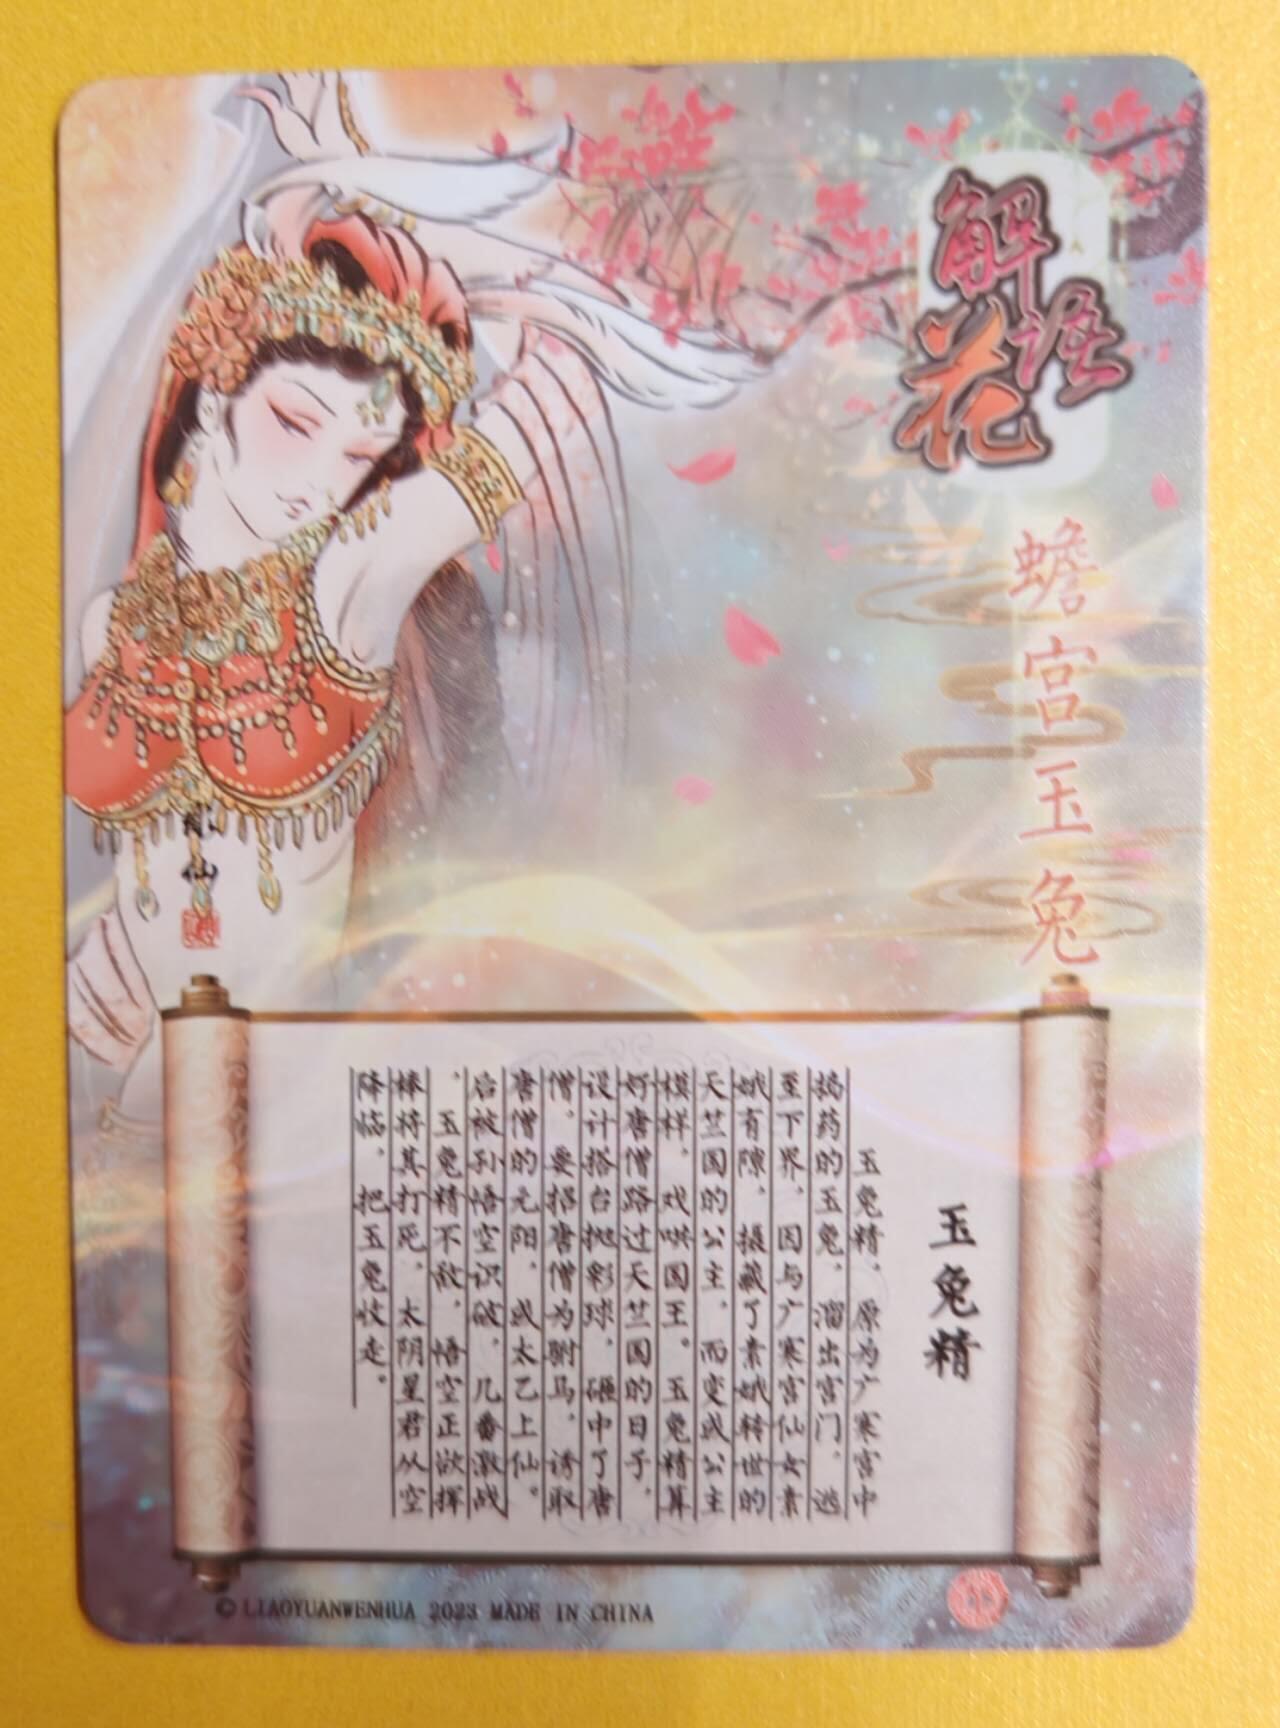 解语花
蟾宫玉兔
玉兔精
玉兔精，原为广寒宫中
捣药的玉兔，溜出宫门，逃
至下界，因与广寒宫仙女素
娥有隙，摄藏了素娥转世的
天竺国的公主，而变成公主
模样，戏哄国王。玉兔精算
好唐僧路过天竺国的日子，
设计搭台抛彩球，砸中了唐
僧，要招唐僧为驸马，诱取
唐僧的元阳，成太乙上仙。
后被孙悟空识破，几番激战
，玉兔精不敌，悟空正欲挥
棒将其打死，太阴星君从空
降临，把玉兔收走。
© LIAOYUANWENHUA 2023 MADE IN CHINA